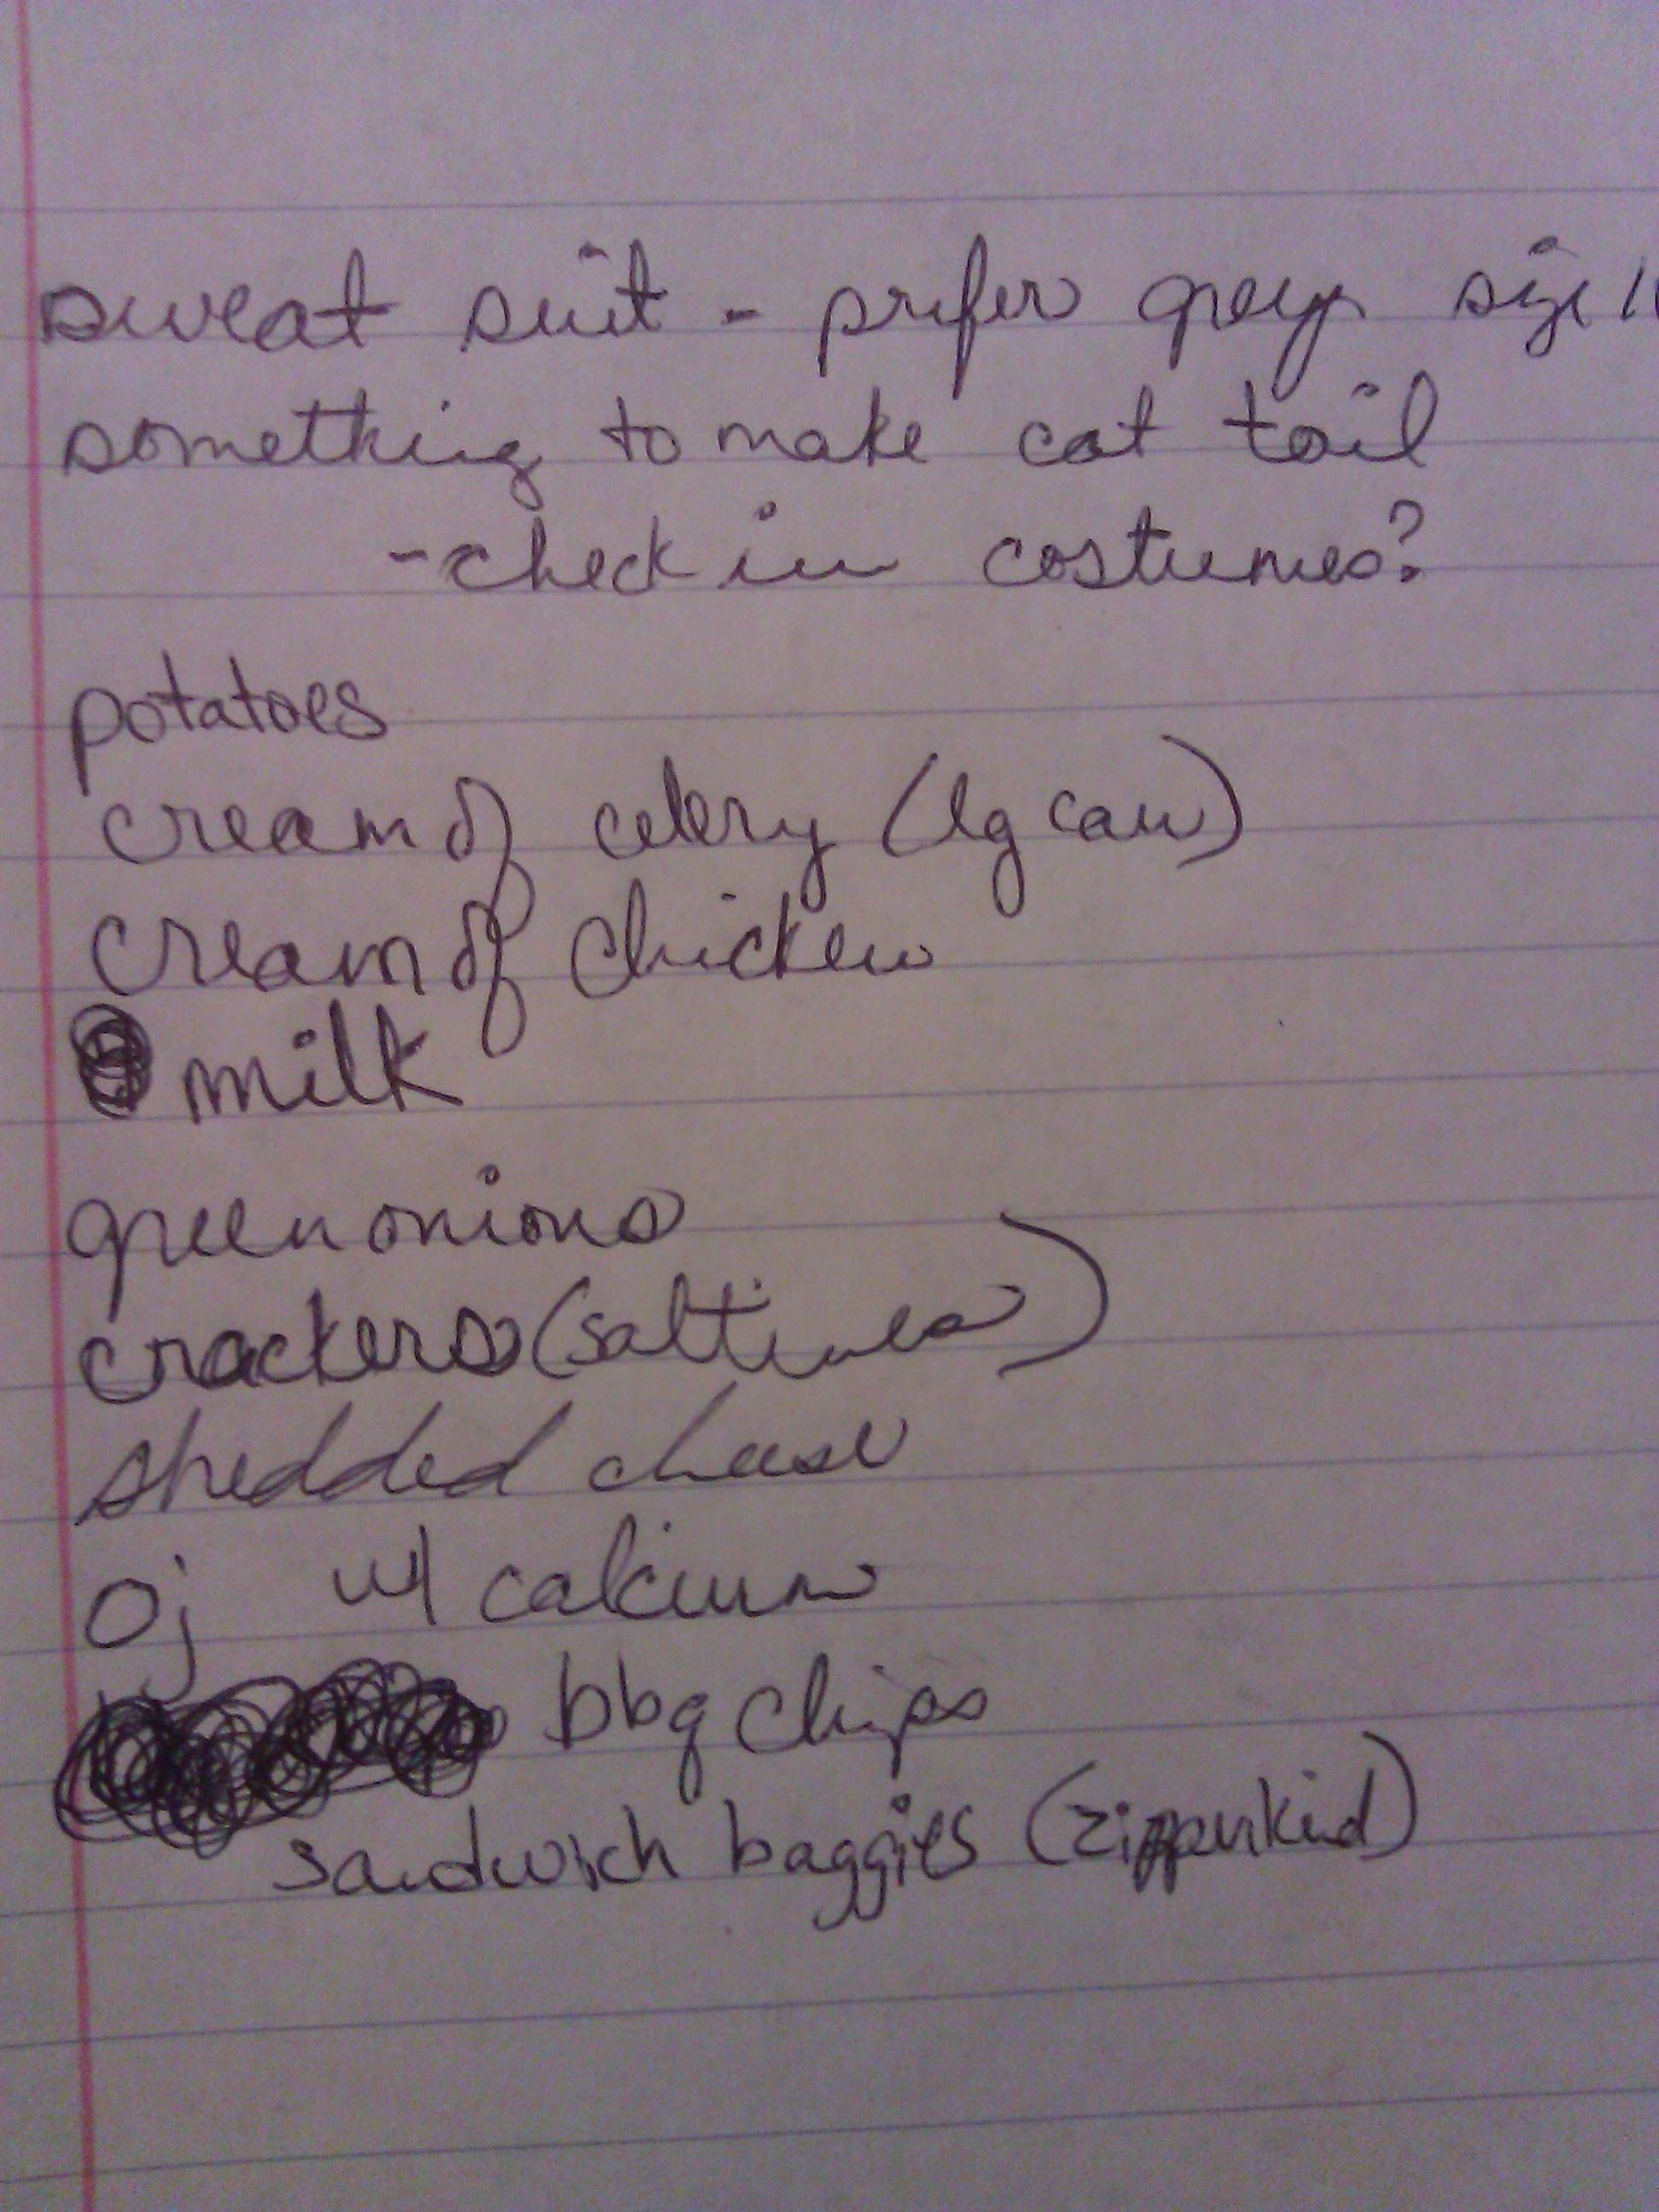 sweat suit - prefer grey size
something to make cat tail
- check in costumes?
potatoes
cream of celery (lg can)
cream of chicken
milk
green onions
crackers (saltines)
shedded cheese
Oj w/ calcium
bbq chips
sandwich baggies (zipper kind)